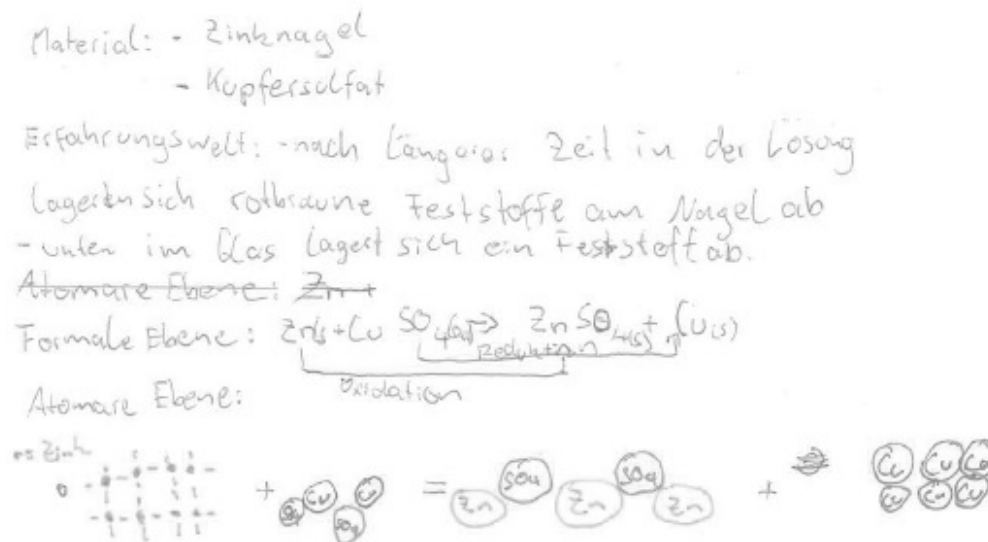 Material: - Zinknagel
- Kupfersulfat
Erfahrungswelt: - nach längerer Zeit in der Lösung
lagerten sich rotbraune Feststoffe am Nagel ab
- unten im Glas lagert sich ein Feststoff ab.
Atomare Ebene: Zn +
Formale Ebene: Zn(s) + Cu SO4(aq) → Zn SO4(s) + Cu(s)
Reduktion
Oxidation
Atomare Ebene:
Zink
+ Cu Cu = SO4 SO4 + Cu Cu Cu
SO4 SO4 Zn Zn Zn Cu Cu Cu